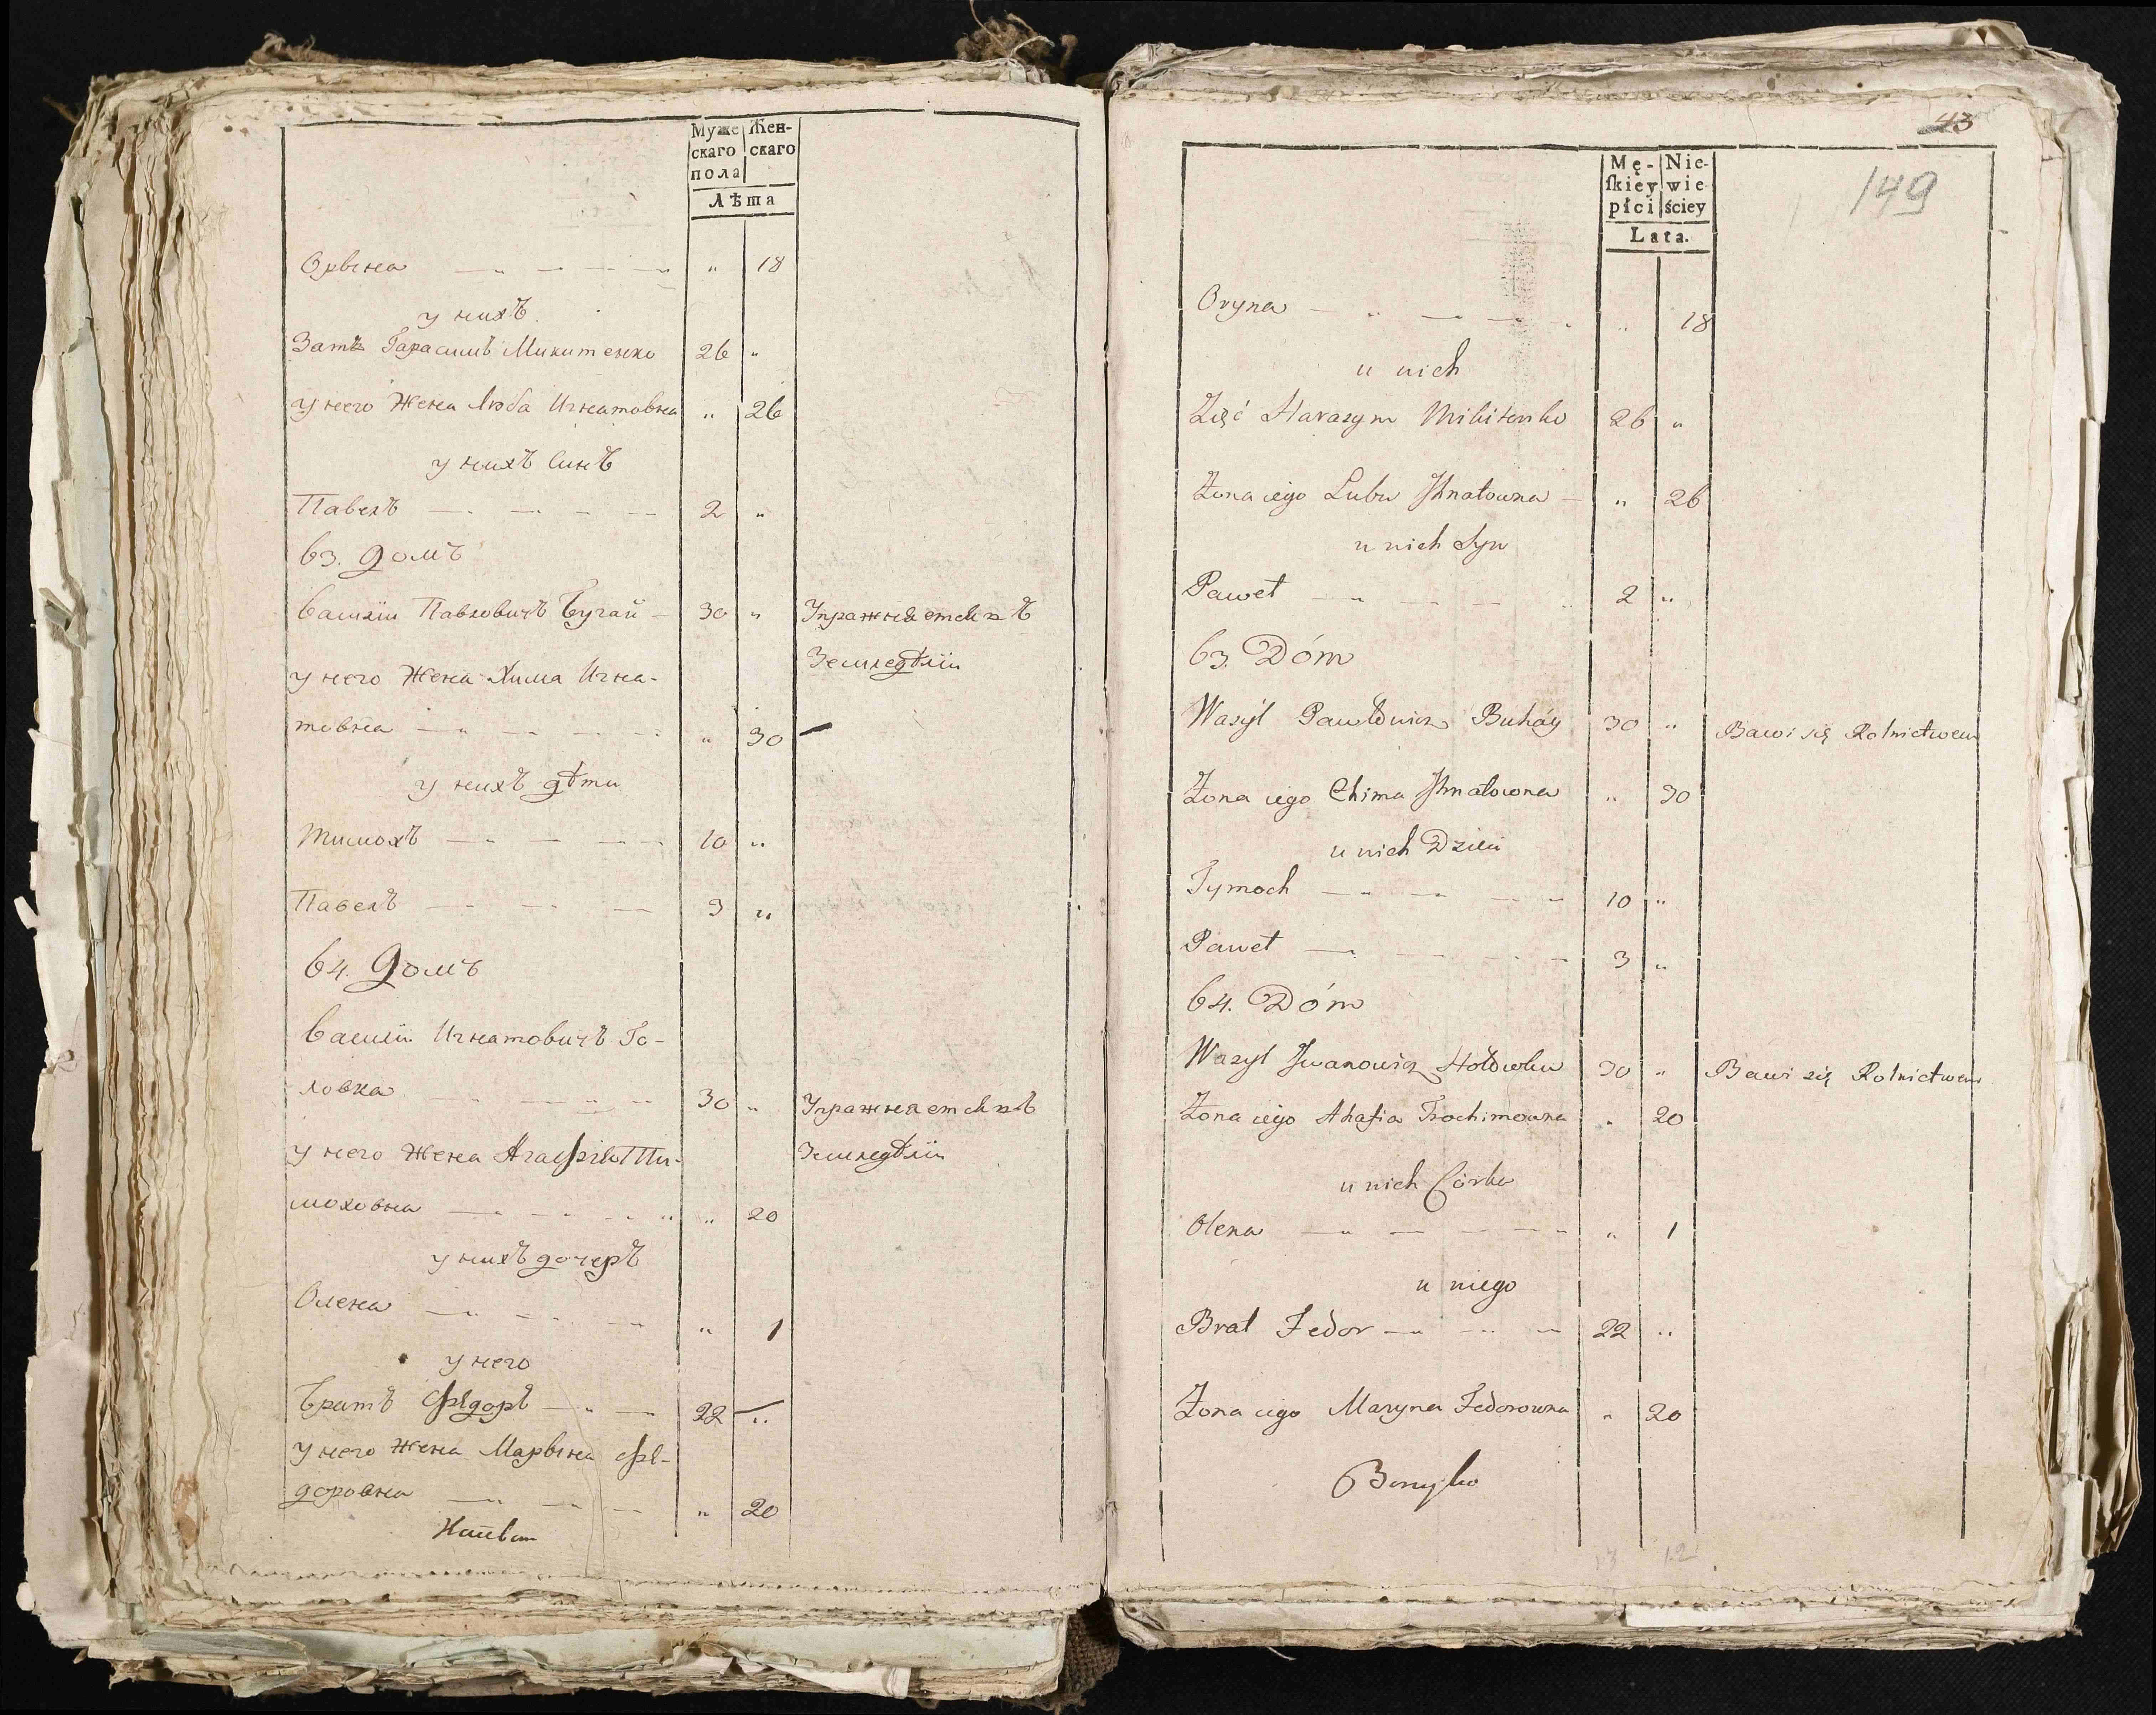 Муже Жен-
скаго скаго
пола
Лѣта
Орына " 18
у нихъ
Зать Гарасимъ Микитенко 26 "
у него Жена Люба Игнатовна " 26
у нихъ Синъ
Павелъ 2 "
63. Домъ
Василiи Павловичъ Бугай 30 " Упражняется въ
Земледѣлiи
у него Жена Хима Игна-
товна " 30
у нихъ дѣти
Тимохъ 10 "
Павелъ 3 "
64. Домъ
Василiи Игнатовичъ Го-
ловка 30 " Упражняется въ
Земледѣлiи
у него Жена Агафiя Ти-
моховна " 20
у нихъ дочеръ
Олена " 1
у него
Братъ Федоръ 22 "
у него Жена Марына Фе-
доровна " 20
43
149
Mę- Nie-
ſkiey wie
płci ściey
Lata.
Oryna " 18
u nich
Zięć Harasym Mikitenko 26 "
Żona iego Luba Ihnatowna " 26
u nich Syn
Paweł 2 "
63. Dóm
Wasyl Pawłowicz Buháy 30 " Bawi się Rolnictwem
Żona iego Chima Ihnatowna " 30
u nich Dzieci
Tymoch 10 "
Paweł 3 "
64. Dóm
Wasyl Iwanowicz Hołowka 30 " Bawi się Rolnictwem
Żona iego Ahafia Trochimowna " 20
u nich Córka
Olena " 1
u niego
Brat Fedor 22 "
Żona iego Maryna Fedorowna " 20
13 12